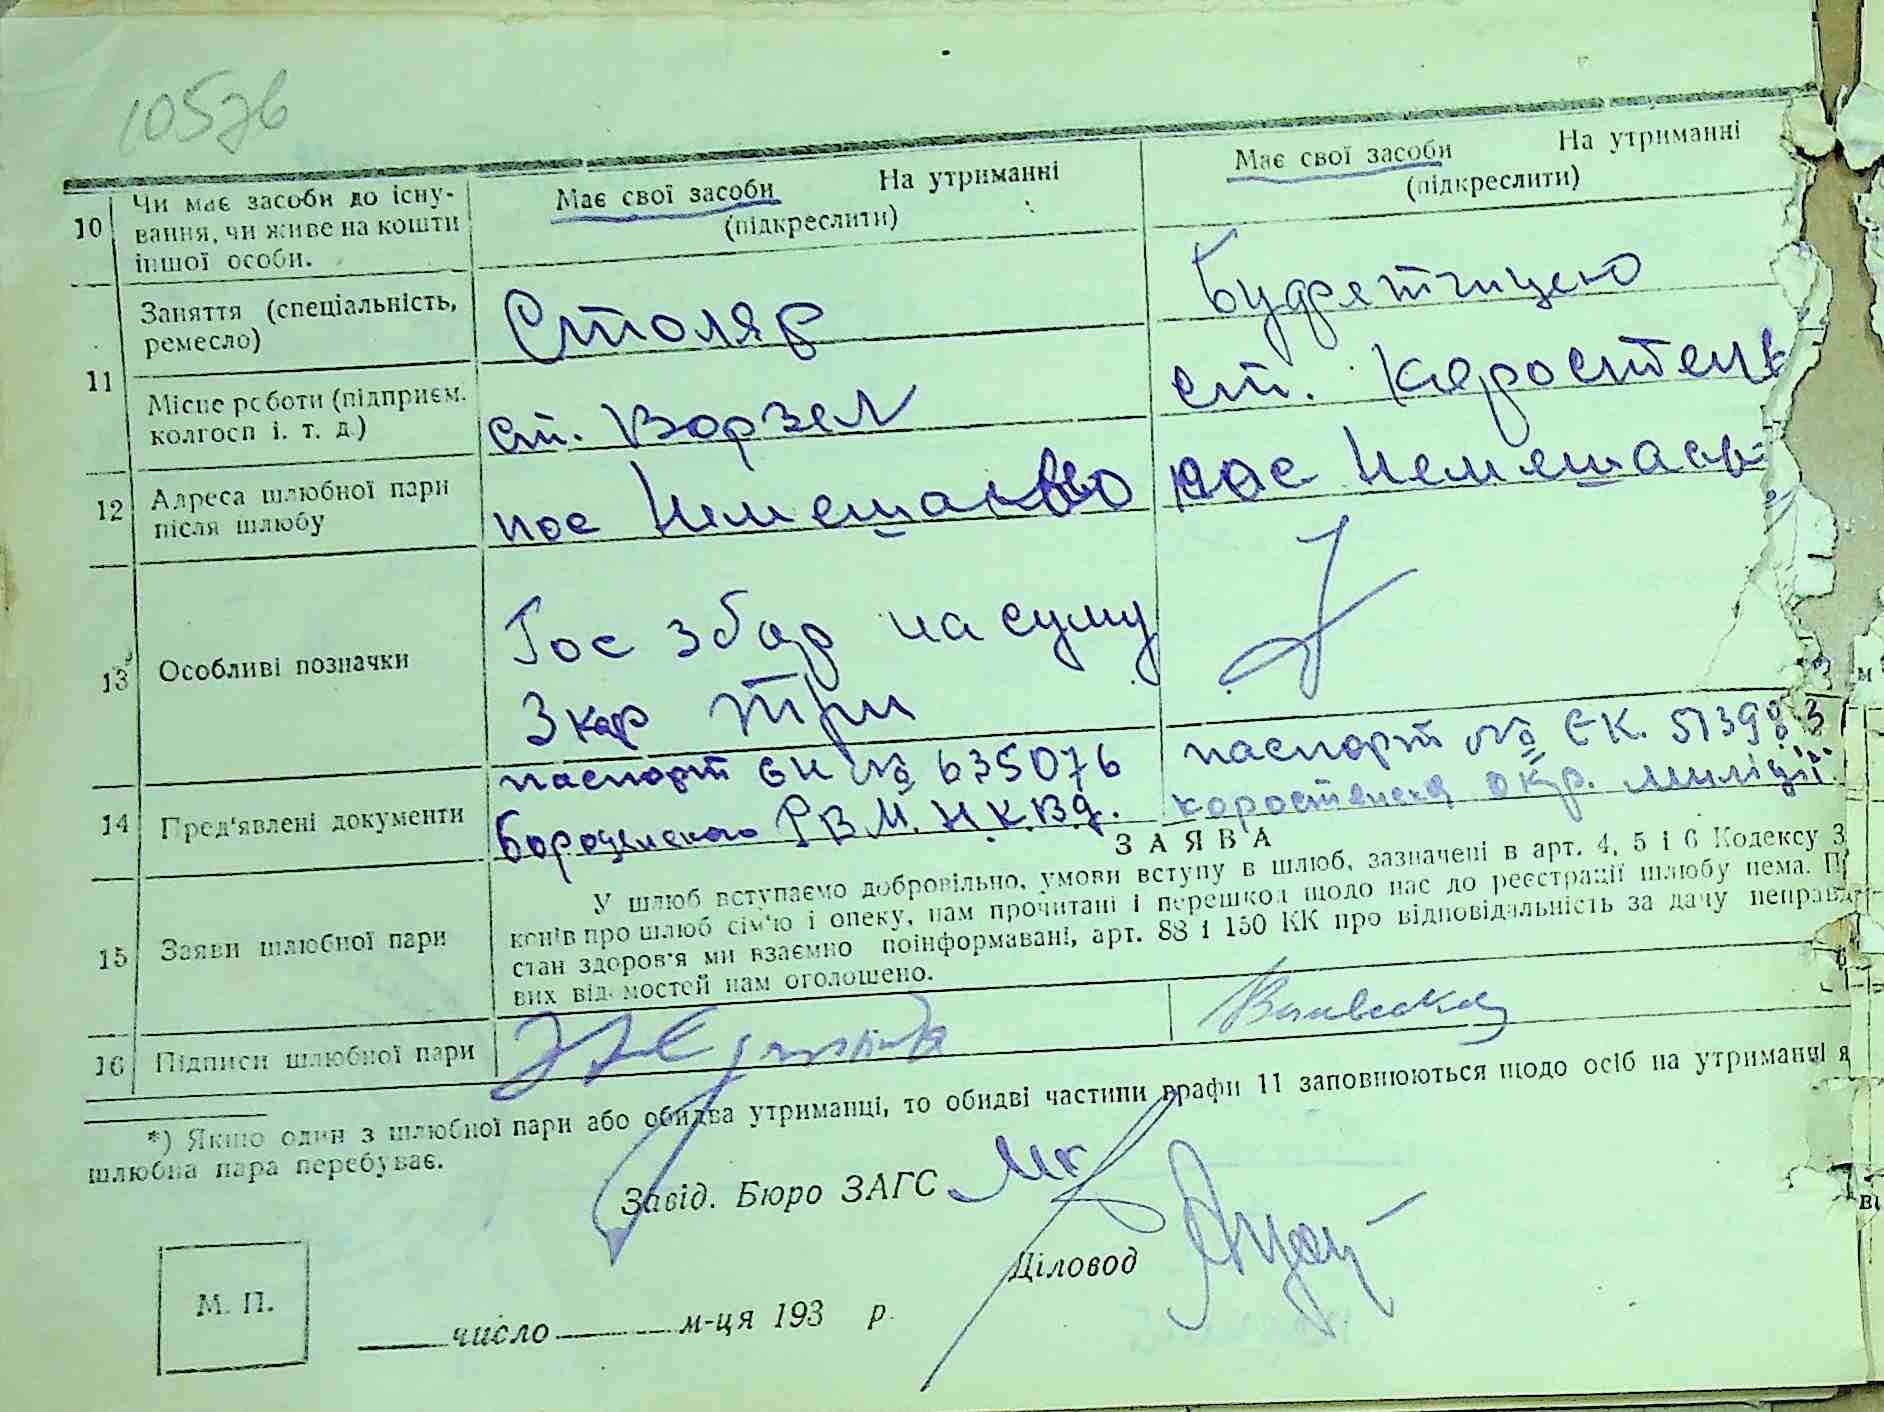 10576
10 Чи має засоби до існу-
вання, чи живе на кошти
іншої особи.
Має свої засоби На утриманні
(підкреслити)
Має свої засоби На утриманні
(підкреслити)
11 Заняття (спеціальність,
ремесло)
Столяр
Місце роботи (підприєм.
колгосп і. т. д.)
ст. Ворзел
ст. Коростень
12 Адреса шлюбної пари
після шлюбу
пос Немешаєво
пос Немешаєв
13 Особливі позначки
Гос збор на суму
3 кар три
14 Пред'явлені документи
паспорт ЄК № 635076
Бородянского Р В М. Н. К. В д.
паспорт № ЄК. 513983
коростенська окр. міліції
З А Я В А
15 Заяви шлюбної пари
У шлюб вступаємо добровільно, умови вступу в шлюб, зазначені в арт. 4, 5 і 6 Кодексу З
конів про шлюб сім'ю і опеку, нам прочитані і перешкод щодо нас до реєстрації шлюбу нема. П
стан здоров'я ми взаємно поінформавані, арт. 88 і 150 КК про відповідальність за дачу неправд
вих відомостей нам оголошено.
16 Підписи шлюбної пари
*) Якщо один з шлюбної пари або обидва утриманці, то обидві частини графи 11 заповнюються щодо осіб на утриманні я
шлюбна пара перебуває.
Завід. Бюро ЗАГС
Діловод
М. П.
число м-ця 193 р.